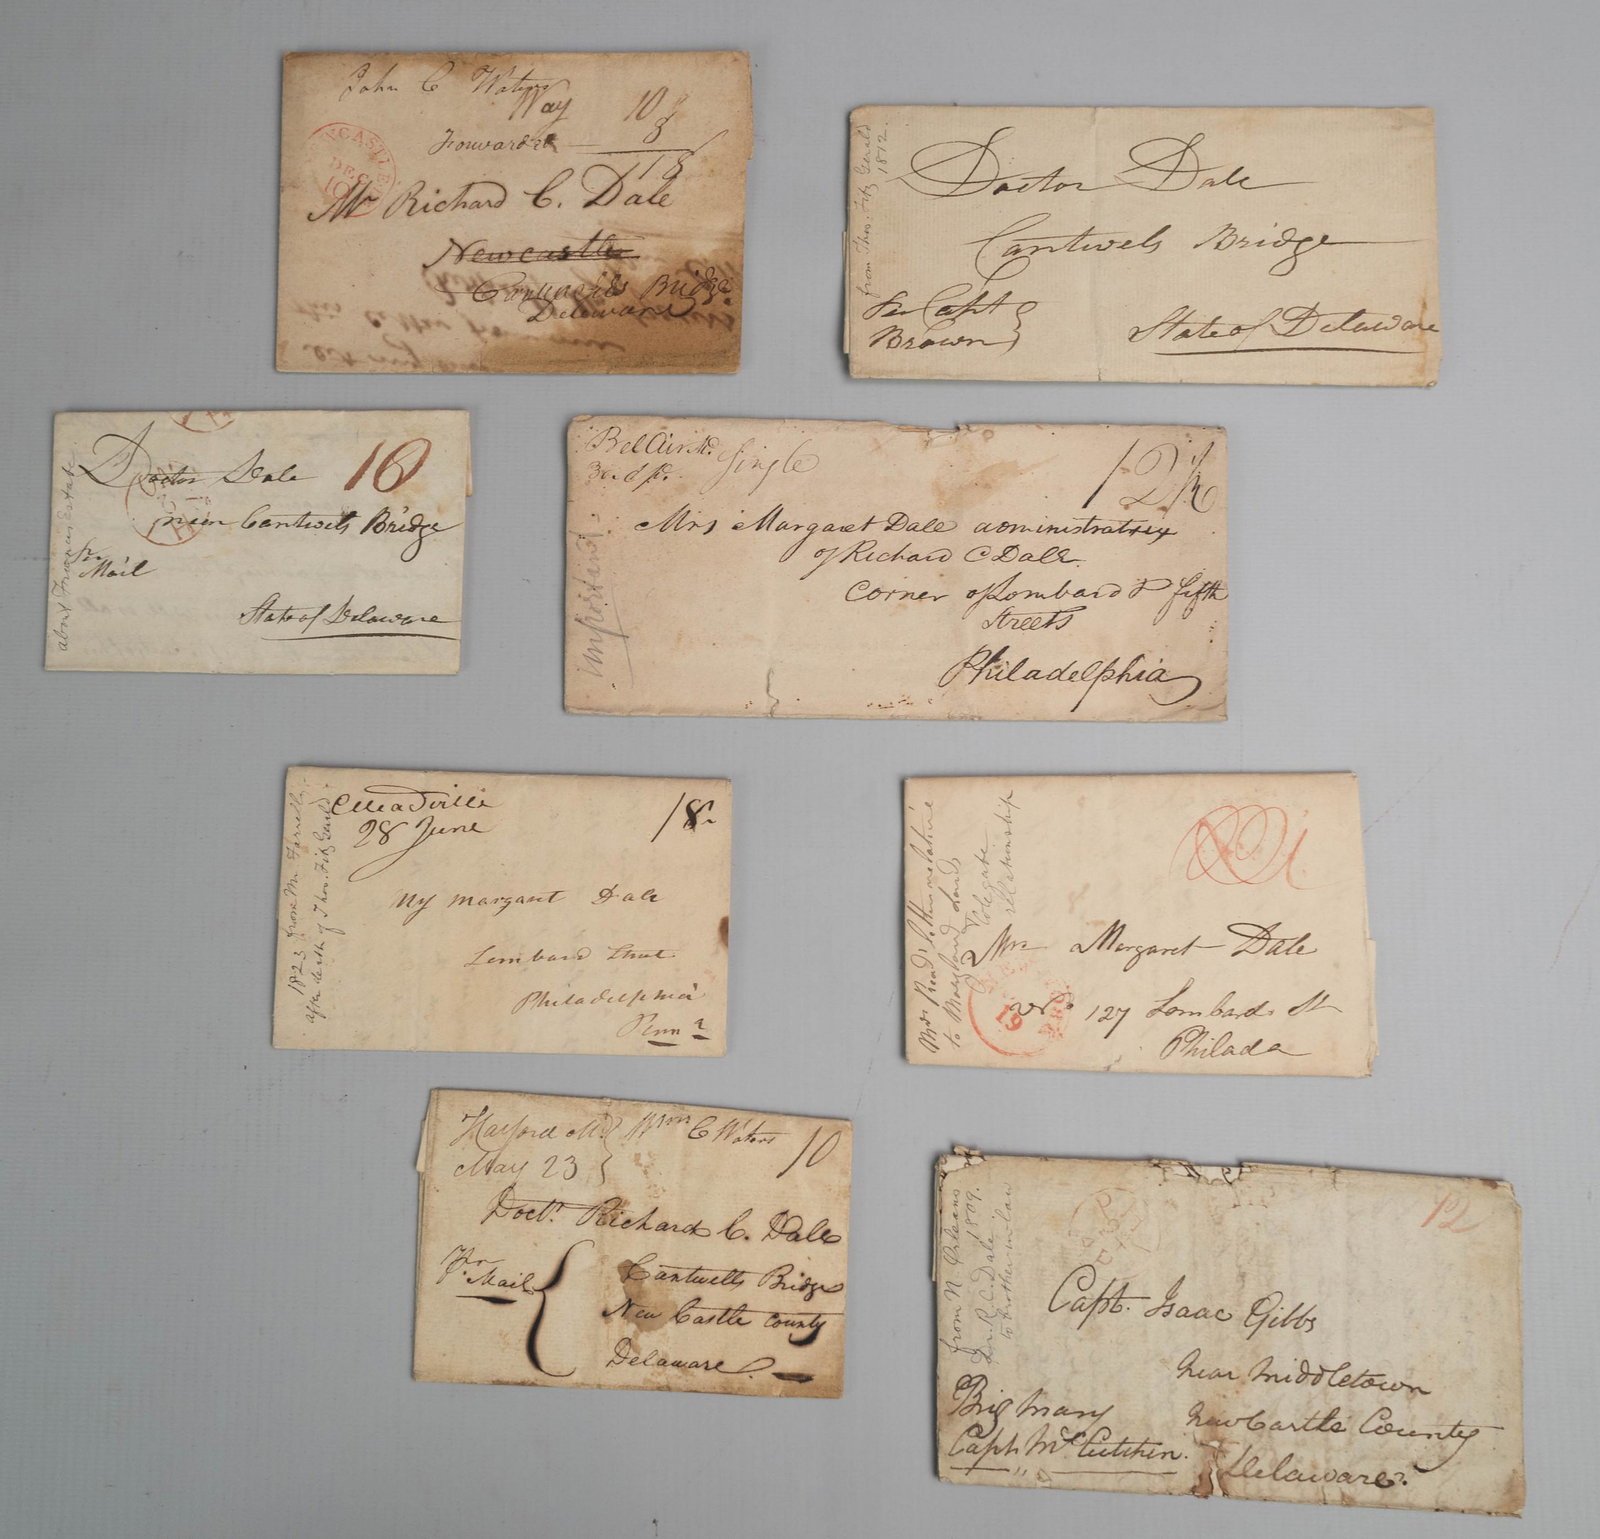 John C Waters
Way 10
Forwarded 8
18
CASTLE
DEC
10
Mr Richard C. Dale
Newcastle
Bridge
Delaware
from Thos. Fitz Gerald
1812.
Doctor Dale
Cantwels Bridge
Per Capt
Brown
State of Delaware
about Francis Estate
Doctor Dale 10
near Cantwels Bridge
Per
Mail
State of Delaware
BelAir Md. Single 12½
important
Mrs Margaret Dale administratrix
of Richard C Dale
Corner of Lombard & fifth
Streets
Philadelphia
1823 from Mr Farrelly
after death of Thos. Fitz Gerald
Meadville
28 June
18
Margaret Dale
Lombard Street
Philadelphia
Penna
Mrs Read
to Maryland Land
& Colegate
relationship
Mrs Margaret Dale
No 127 Lombard St
Philada
Harford Md Wm C Waters 10
May 23
Doctr Richard C. Dale
Per
Mail
Cantwells Bridge
New Castle County
Delaware
from N. Orleans
Dr. R. C. Dale 1809.
to brother in law
12
Capt. Isaac Gibbs
near Middletown
NewCastle County
Delaware.
Brig Mary
Capt. McCutchen.